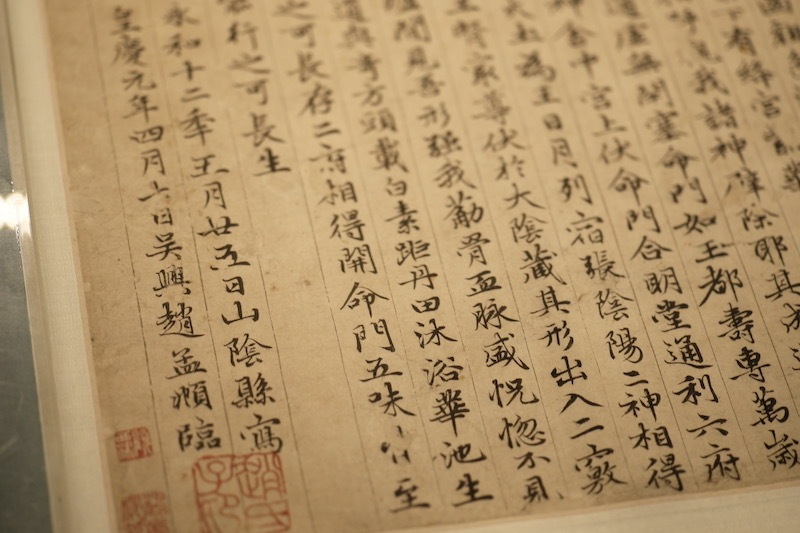 下有絳宮
我諸神辟除耶其成
道虛無閉塞命門如玉都壽專萬歲
神舍中宮上伏命門合明堂通利六府
火土為王日月列宿張陰陽二神相得
王腎㝡尊伏於大陰藏其形出入二竅
閒見吾形強我筋骨血脈盛恍惚不見
道與奇方頭載白素距丹田沐浴華池生
之可長存二府相得開命門五味皆至
行之可長生
永和十二季五月廿五日山陰縣寫
皇慶元年四月六日吳興趙孟頫臨